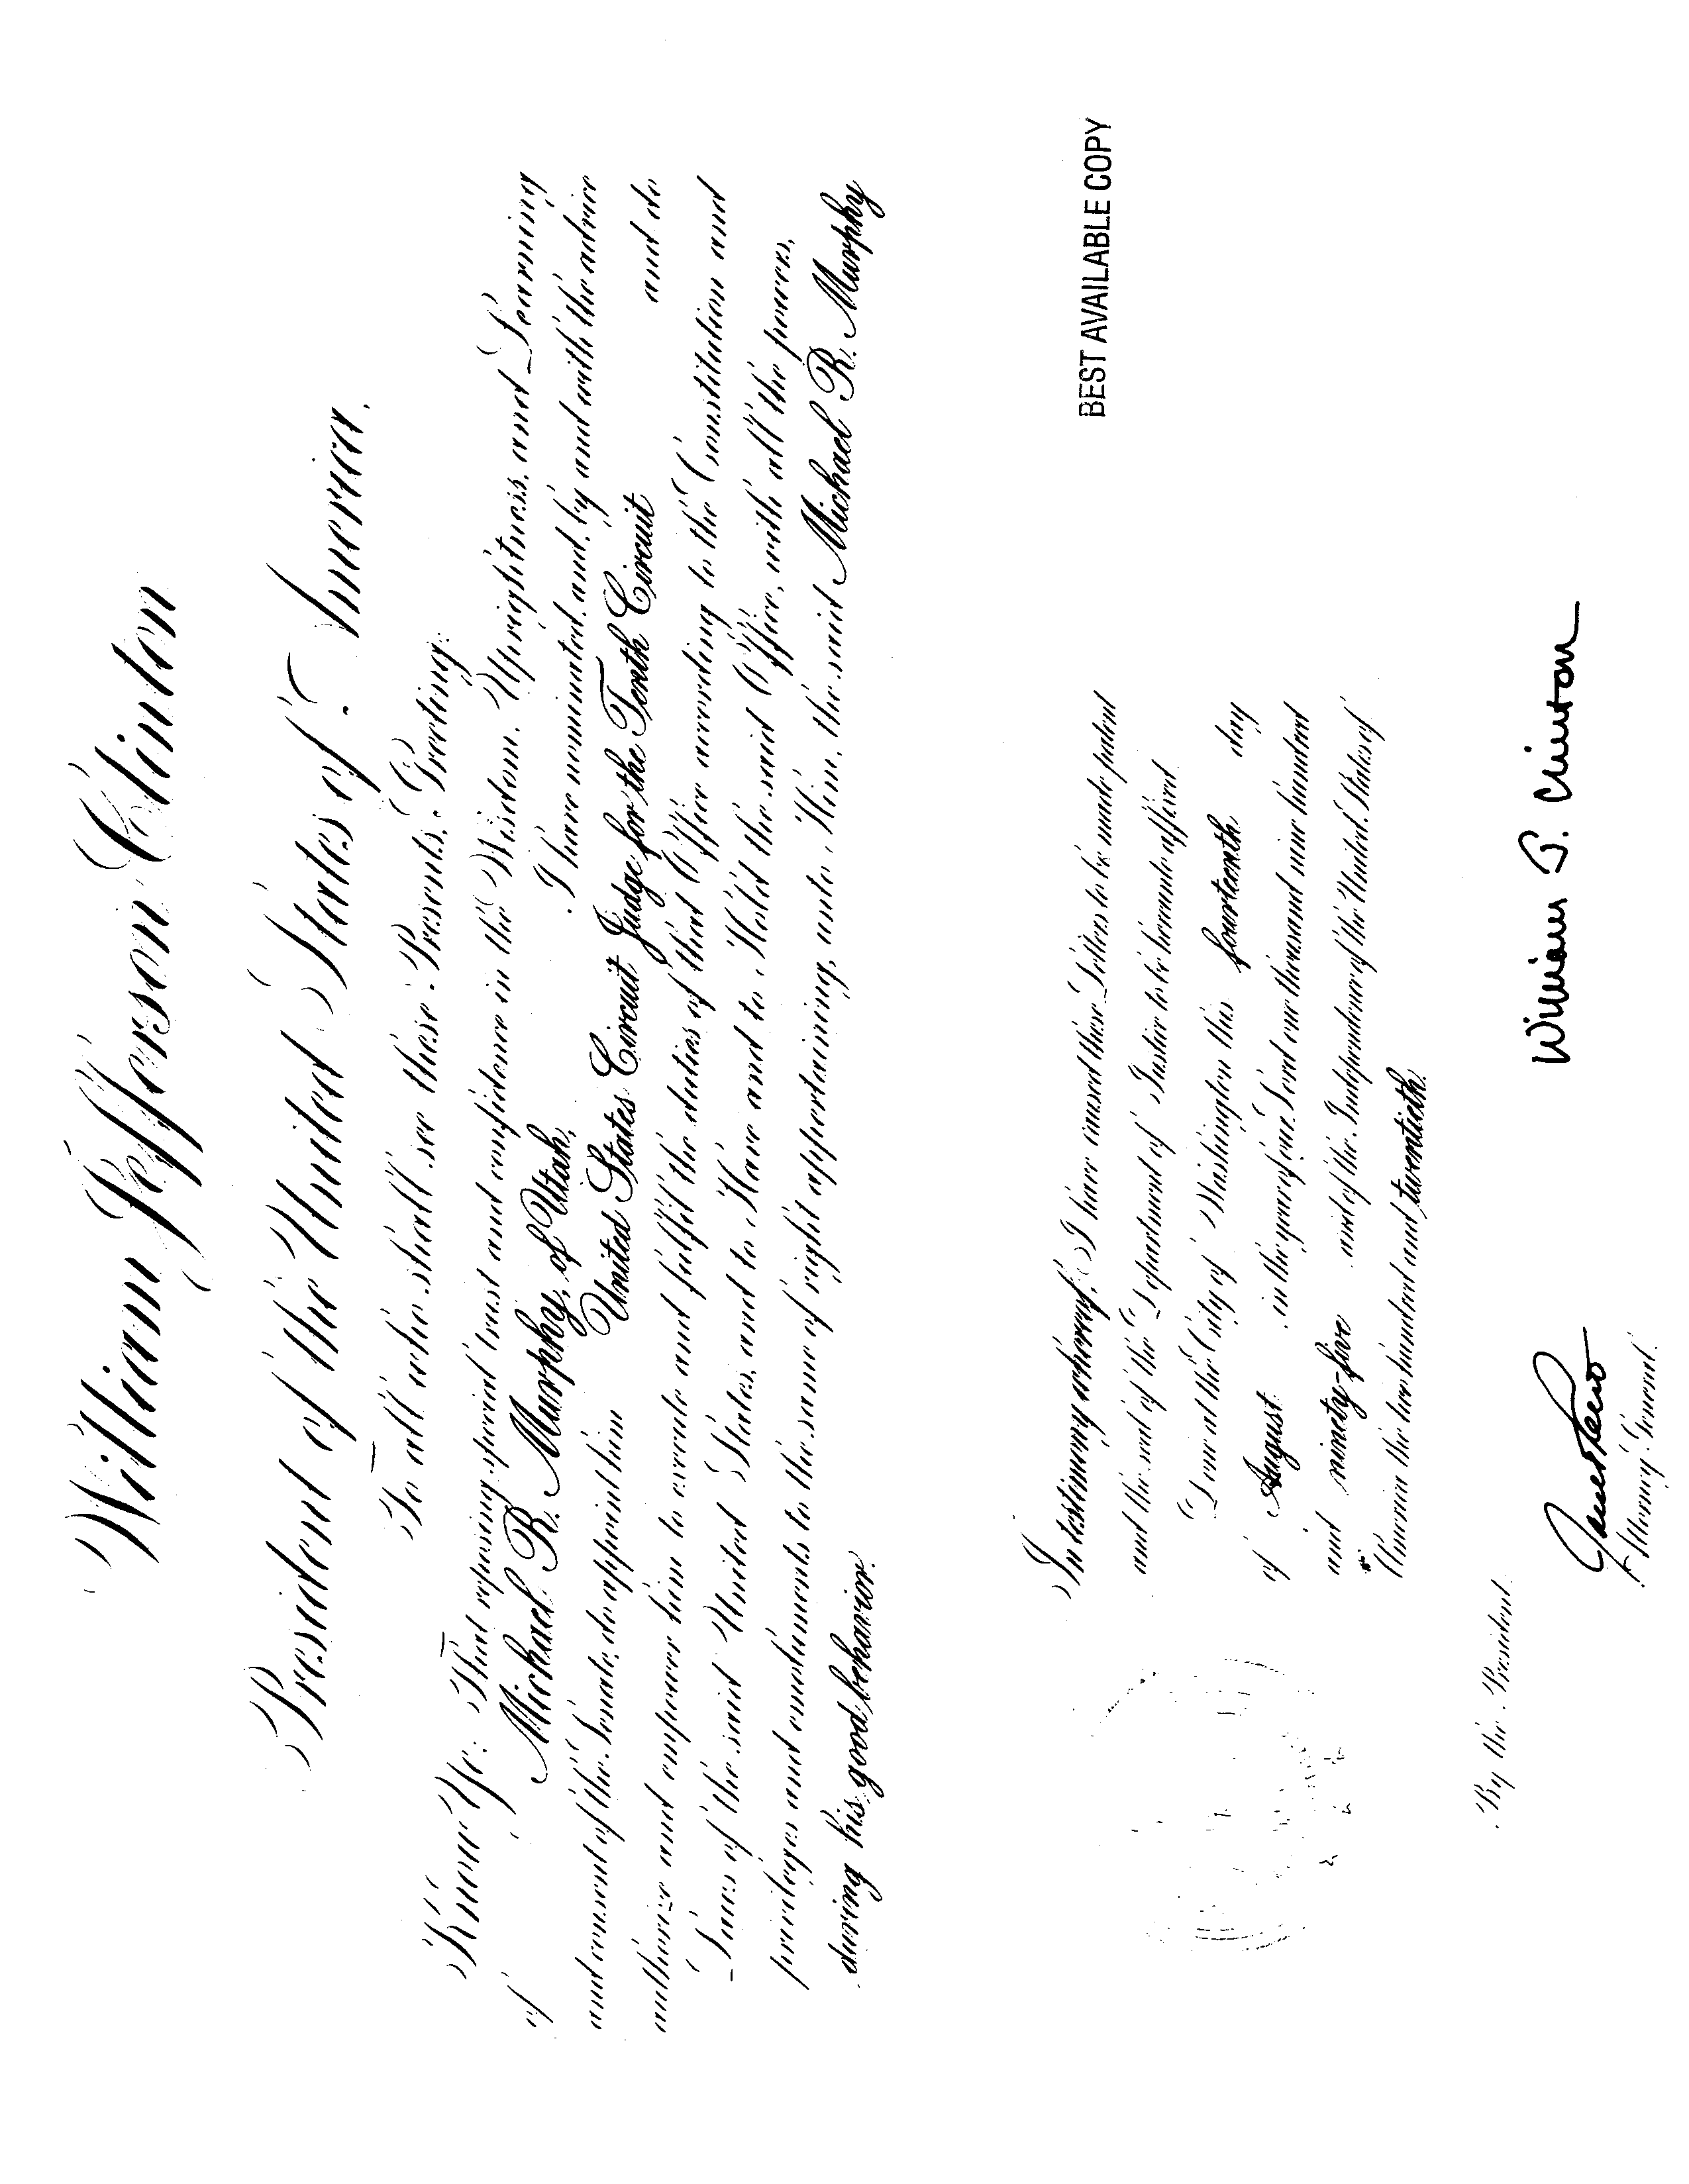 William Jefferson Clinton
President of the United States of America.
To all who shall see these Presents, Greeting:
Know Ye: That reposing special trust and confidence in the Wisdom, Uprightness, and Learning
of Michael R. Murphy, of Utah, I have nominated, and, by and with the advice
and consent of the Senate, do appoint him United States Circuit Judge for the Tenth Circuit and do
authorize and empower him to execute and fulfil the duties of that Office according to the Constitution and
Laws of the said United States, and to Have and to Hold the said Office, with all the powers,
privileges and emoluments to the same of right appertaining, unto Him, the said Michael R. Murphy
during his good behavior.
BEST AVAILABLE COPY
In testimony whereof, I have caused these Letters to be made patent
and the seal of the Department of Justice to be hereunto affixed.
Done at the City of Washington this fourteenth day
of August in the year of our Lord one thousand nine hundred
and ninety-five and of the Independence of the United States of
America the two hundred and twentieth.
William J. Clinton
By the President:
Janet Reno
Attorney General.